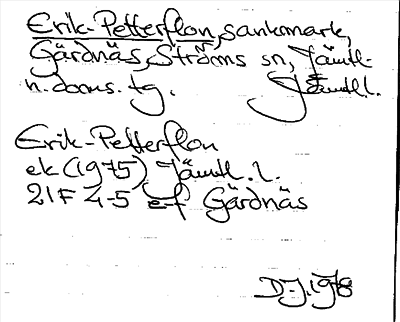 Erik-Petterflon, sankmark,
Gärdnäs, Ströms sn, Jämtl-
n. doms. tg. Jämtl l.
Erik-Petterflon
ek (1975) Jämtl. l.
21F 4-5 e-f Gärdnäs
D-J. 1978